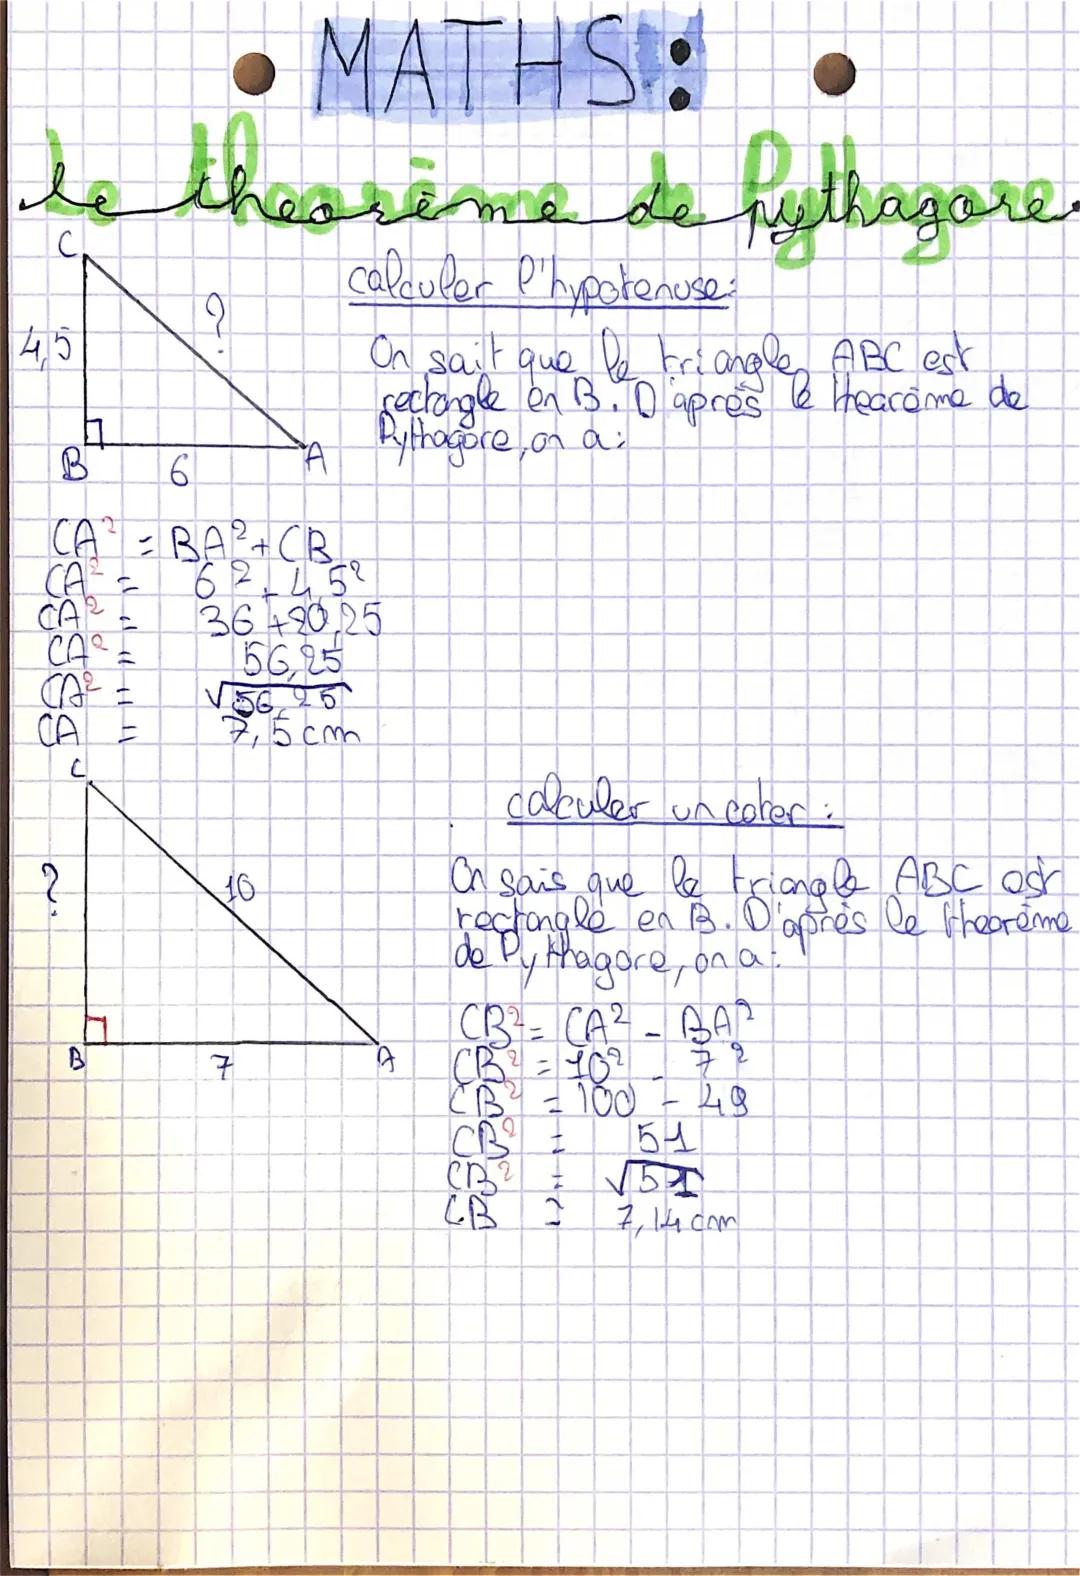 MATHS :
le theorème de Pythagore.
C
?
4,5
B
6
A
calculer l'hypotenuse:
On sait que le triangle ABC est
rectangle en B. D'après le thearème de
Pythagore, on a:
CA² = BA² + CB
CA² = 6² + 4,5²
CA² = 36 + 20,25
CA² = 56,25
CA² = √56,25
CA = 7,5 cm
C
?
10
B
7
A
calculer un coter :
On sais que le triangle ABC est
rectangle en B. D'après le theorème
de Pythagore, on a:
CB² = CA² - BA²
CB² = 10² - 7²
CB² = 100 - 49
CB² = 51
CB² = √51
CB ≈ 7,14 cm